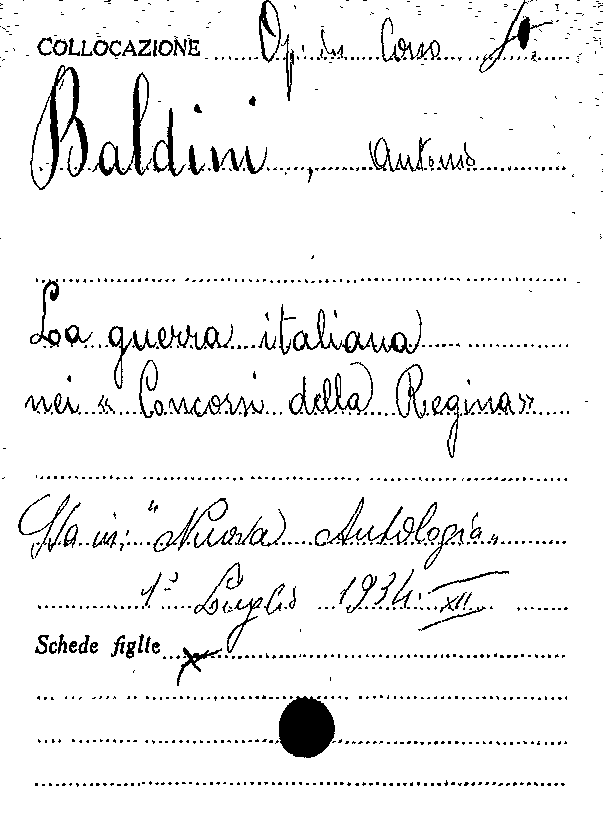 COLLOCAZIONE Op. in Corso
Baldini, Antonio
La guerra italiana
nei « Concorsi della Regina»
Sta in: "Nuova Antologia„
1° Luglio 1934. XII
Schede figlie